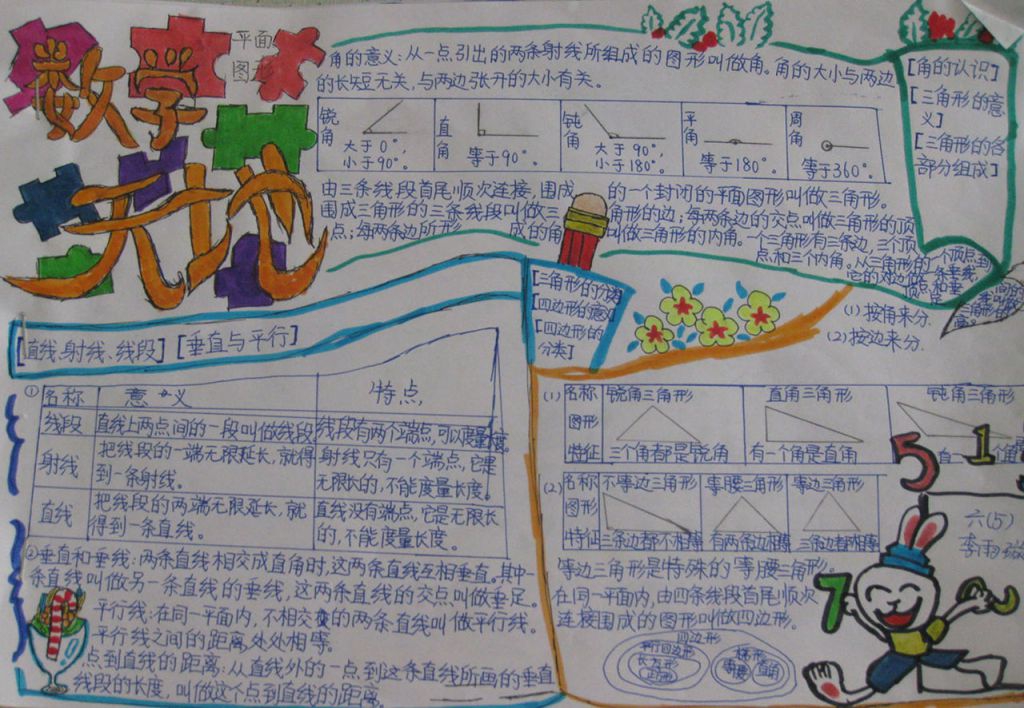 数学
天地
平面
图形
角的意义:从一点引出的两条射线所组成的图形叫做角。角的大小与两边
的长短无关,与两边张开的大小有关。
锐角 大于0°,小于90°。
直角 等于90°。
钝角 大于90°,小于180°。
平角 等于180°。
周角 等于360°。
由三条线段首尾顺次连接,围成的一个封闭的平面图形叫做三角形。
围成三角形的三条线段叫做三角形的边;每两条边的交点叫做三角形的顶
点;每两条边所形成的角叫做三角形的内角。一个三角形有三条边,三个顶
点和三个内角。从三角形的一个顶点到
[角的认识]
[三角形的意
义]
[三角形的各
部分组成]
[直线、射线、线段] [垂直与平行]
① 名称 意义 特点
线段 直线上两点间的一段叫做线段 线段有两个端点,可以度量长度。
射线 把线段的一端无限延长,就得到一条射线。 射线只有一个端点,它是无限长的,不能度量长度。
直线 把线段的两端无限延长,就得到一条直线。 直线没有端点,它是无限长的,不能度量长度。
②垂直和垂线:两条直线相交成直角时,这两条直线互相垂直。其中一
条直线叫做另一条直线的垂线,这两条直线的交点叫做垂足。
平行线:在同一平面内,不相交的两条直线叫做平行线。
平行线之间的距离处处相等。
点到直线的距离:从直线外的一点,到这条直线所画的垂直
线段的长度,叫做这个点到直线的距离。
[三角形的分类]
[四边形的意义]
[四边形的
分类]
(1)按角来分.
(2)按边来分.
(1) 名称 锐角三角形 直角三角形 钝角三角形
图形
特征 三个角都是锐角 有一个角是直角
(2) 名称 不等边三角形 等腰三角形 等边三角形
图形
特征 三条边都不相等 有两条边相等 三条边都相等
等边三角形是特殊的等腰三角形。
在同一平面内,由四条线段首尾顺次
连接围成的图形叫做四边形。
四边形
平行四边形
长方形
正方形
梯形
等腰
直角
5
1
7
六(5)